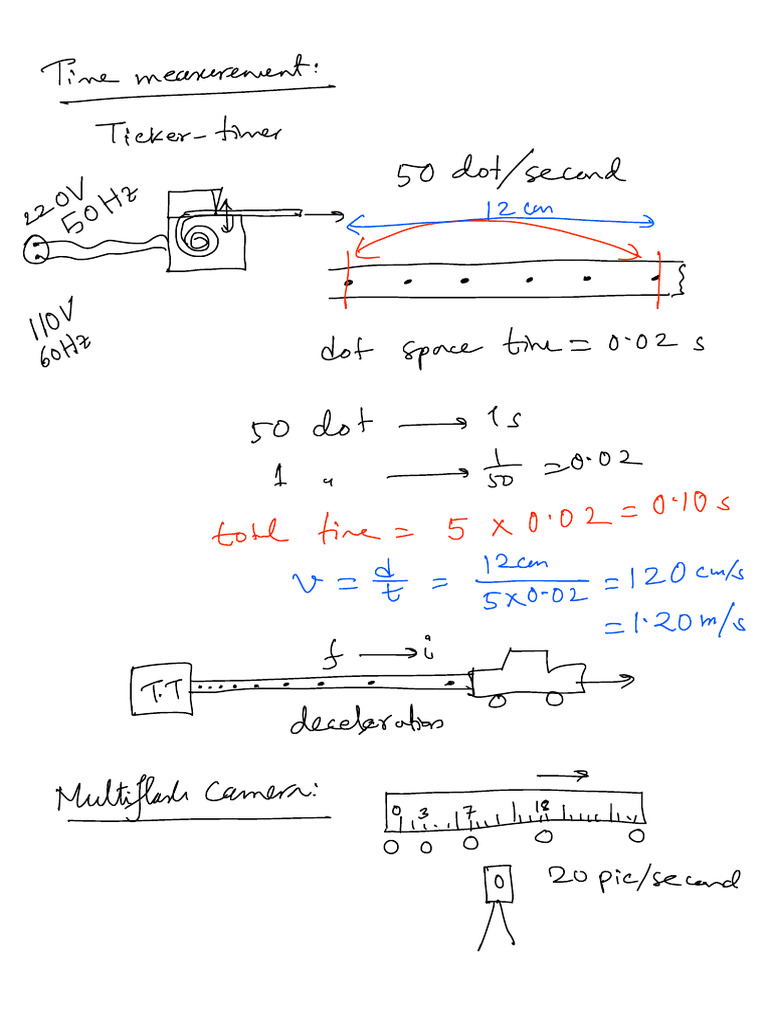 Time measurement:
Ticker-timer
50 dot/second
220V
50Hz
12 cm
110V
60Hz
dot space time = 0.02 s
50 dot → 1s
1 " → 1/50 = 0.02
total time = 5 x 0.02 = 0.10 s
v = d/t = 12cm/5x0.02 = 120 cm/s
= 1.20 m/s
f → i
T.T
deceleration
Multiflash Camera:
0 3 7 18
20 pic/second